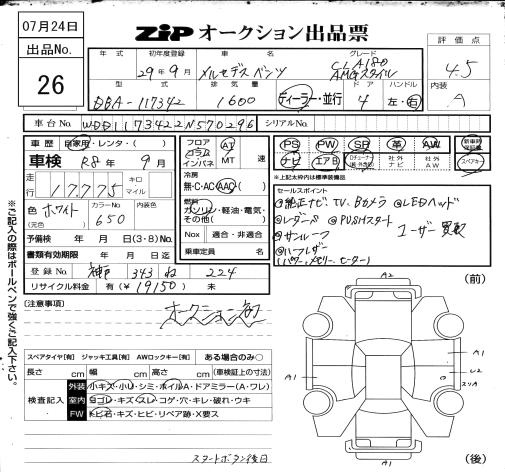 07月24日
ZIP オークション出品票
出品No.
26
年式
初年度登録
車名
グレード
評価点
29年9月
メルセデスベンツ
CLA180
AMGスタイル
4.5
型式
排気量
ドア
ハンドル
内装
DBA-117342
1600
ディーラー・並行
4
左・右
A
車台No.
WDD1173422N570296
シリアルNo.
車歴
自家用・レンタ・( )
車検
R8年9月
走行
17775
キロ
マイル
色
ホワイト
(元色)
カラーNo
650
内装色
予備検 年 月 日(3・8)No.
書類有効期限 年 月 日迄
登録No. 神戸 343 ね 224
リサイクル料金 有(¥19150) 未
フロア
コラム
インパネ
AT
MT
速
冷房
無・C・AC・AAC
燃料
ガソリン・軽油・電気・
その他( )
Nox 適合・非適合
乗車定員 名
PS
PW
SR
革
AW
新車時保証書
ナビ
エアB
社外ナビ
社外AW
スペアキー
※上記太枠内は標準装備品
セールスポイント
@純正ナビ TV、Bカメラ @LEDヘッド
@レーダーS @PUSHスタート
@サンルーフ
ユーザー買取
@ハーフレザー
(パワー、メモリー、ヒーター)
(注意事項)
オークション初
スペアタイヤ[有] ジャッキ工具[有] AWロックキー[有] ある場合のみ○
長さ cm 幅 cm 高さ cm (車検証上の寸法)
検査記入
外装 小キズ・小U・シミ・ホイルA・ドアミラー(A・ワレ)
室内 ヨゴレ・キズ・スレ・コゲ・穴・キレ・破れ・ウキ
FW トビ石・キズ・ヒビ・リペア跡・X要ス
スタートボタン後日
※ご記入の際はボールペンで強くご記入下さい。
(前)
A2
A1
A1
U2
スリA
A1
(後)